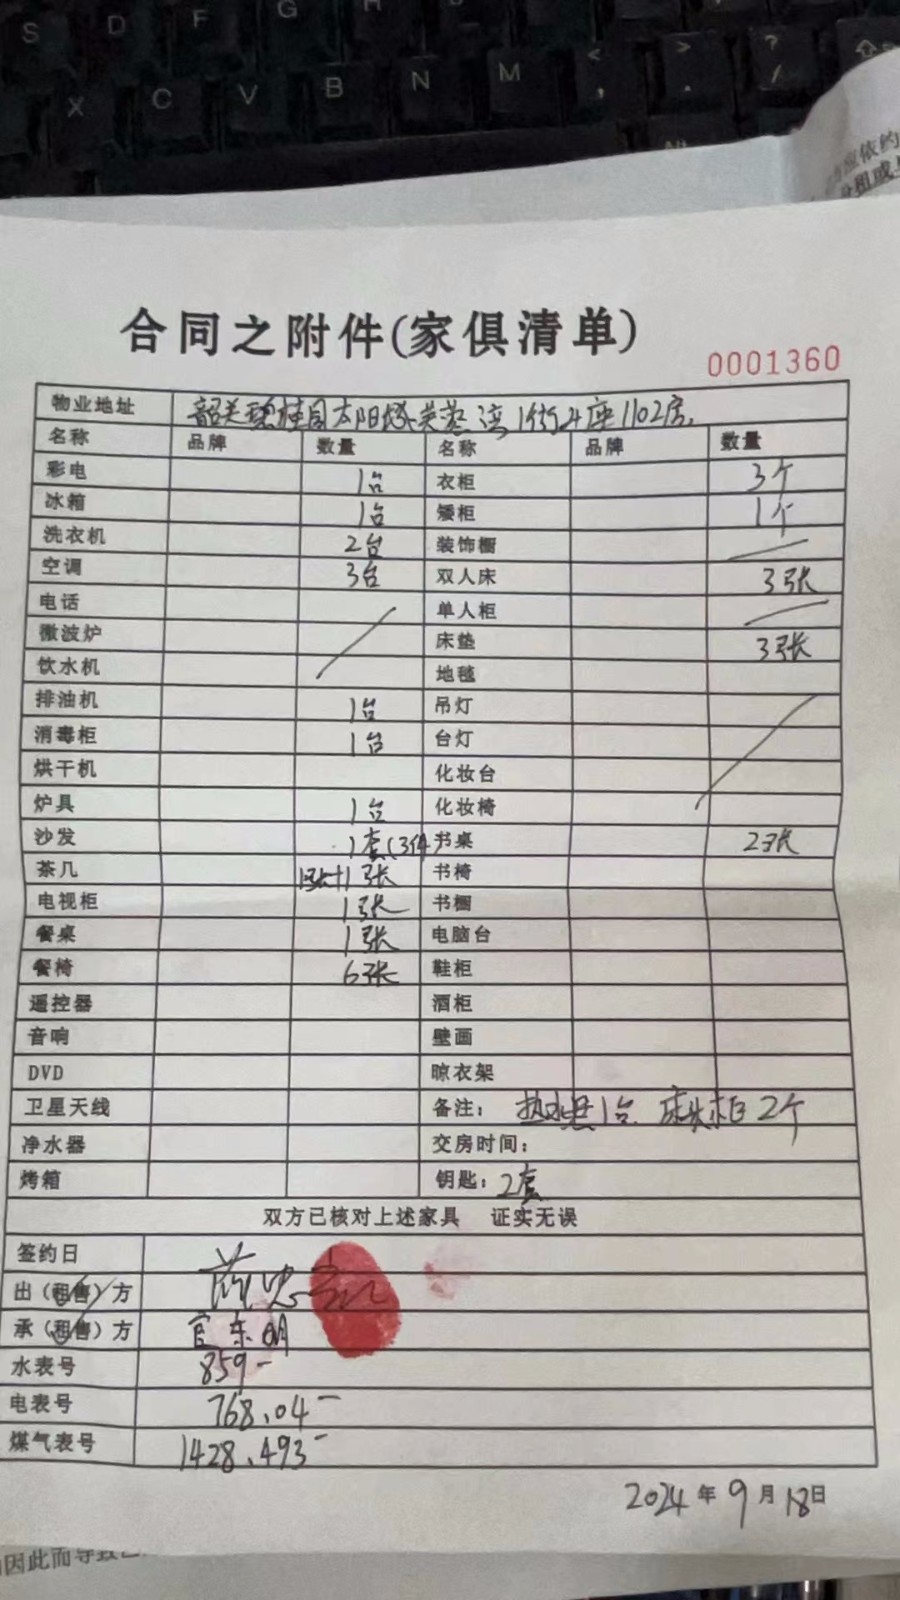 S D F G H
X C V B N M < > ?
, . /
Alt
合同之附件(家俱清单)
0001360
物业地址 韶关碧桂园太阳城芙蓉湾1街4座1102房.
名称 品牌 数量 名称 品牌 数量
彩电 1台 衣柜 3个
冰箱 1台 矮柜 1个
洗衣机 2台 装饰橱
空调 3台 双人床 3张
电话 单人柜
微波炉 床垫 3张
饮水机 地毯
排油机 1台 吊灯
消毒柜 1台 台灯
烘干机 化妆台
炉具 1台 化妆椅
沙发 1套(3件) 书桌 2张
茶几 1张+1张 书椅
电视柜 1张 书橱
餐桌 1张 电脑台
餐椅 6张 鞋柜
遥控器 酒柜
音响 壁画
DVD 晾衣架
卫星天线 备注: 热水器1台. 床头柜2个
净水器 交房时间:
烤箱 钥匙: 2套
双方已核对上述家具 证实无误
签约日
出(租售)方
承(租售)方 官东明
水表号 859-
电表号 768.04-
煤气表号 1428.493-
2024年9月18日
因此而导致